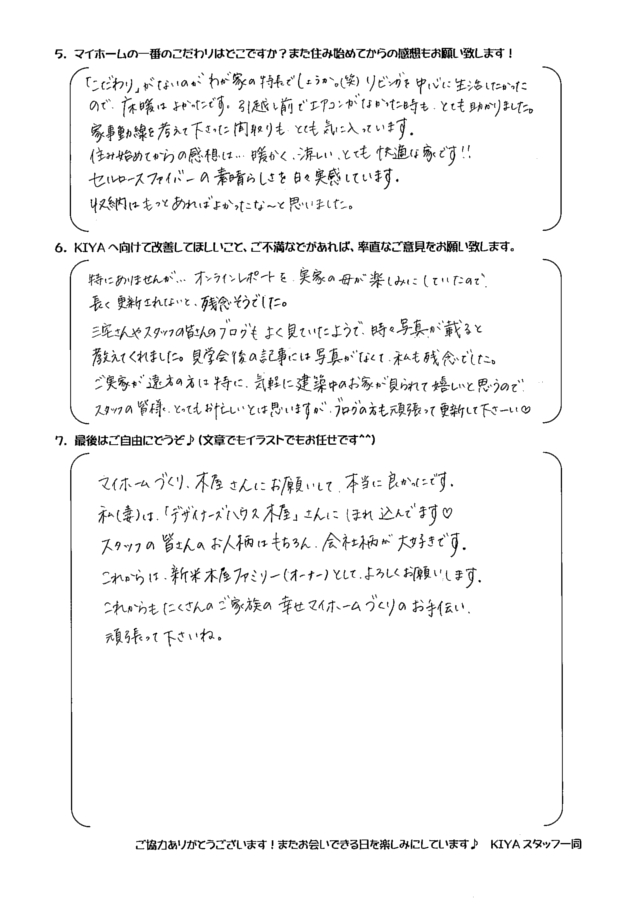 5. マイホームの一番のこだわりはどこですか？また住み始めてからの感想もお願い致します！
「こだわり」がないのが わが家の特長でしょうか。(笑) リビングを中心に生活したかった
ので、床暖はよかったです。引越し前でエアコンがなかった時も、とても助かりました。
家事動線を考えて下さった間取りも とても気に入っています。
住み始めてからの感想は… 暖かく、涼しい、とても快適な家です!!
セルロースファイバーの素晴らしさを日々実感しています。
収納はもっとあればよかったな〜と思いました。
6. KIYAへ向けて改善してほしいこと、ご不満などがあれば、率直なご意見をお願い致します。
特にありませんが… オンラインレポートを、実家の母が楽しみにしていたので、
長く更新されないと、残念そうでした。
三宅さんやスタッフの皆さんのブログも よく見ていたようで、時々写真が載ると
教えてくれました。見学会後の記事には写真がなくて、私も残念でした。
ご実家が遠方の方は特に、気軽に建築中のお家が見られて嬉しいと思うので、
スタッフの皆様、とってもお忙しいとは思いますが、ブログの方も頑張って更新して下さーい♡
7. 最後はご自由にどうぞ♪(文章でもイラストでもお任せです^^)
マイホームづくり、木屋さんにお願いして、本当に良かったです。
私(妻)は、「デザイナーズハウス木屋」さんに ほれ込んでます♡
スタッフの皆さんのお人柄はもちろん、会社柄が大好きです。
これからは、新米木屋ファミリー(オーナー)として、よろしくお願いします。
これからもたくさんのご家族の幸せマイホームづくりのお手伝い、
頑張って下さいね。
ご協力ありがとうございます！またお会いできる日を楽しみにしています♪ KIYAスタッフ一同